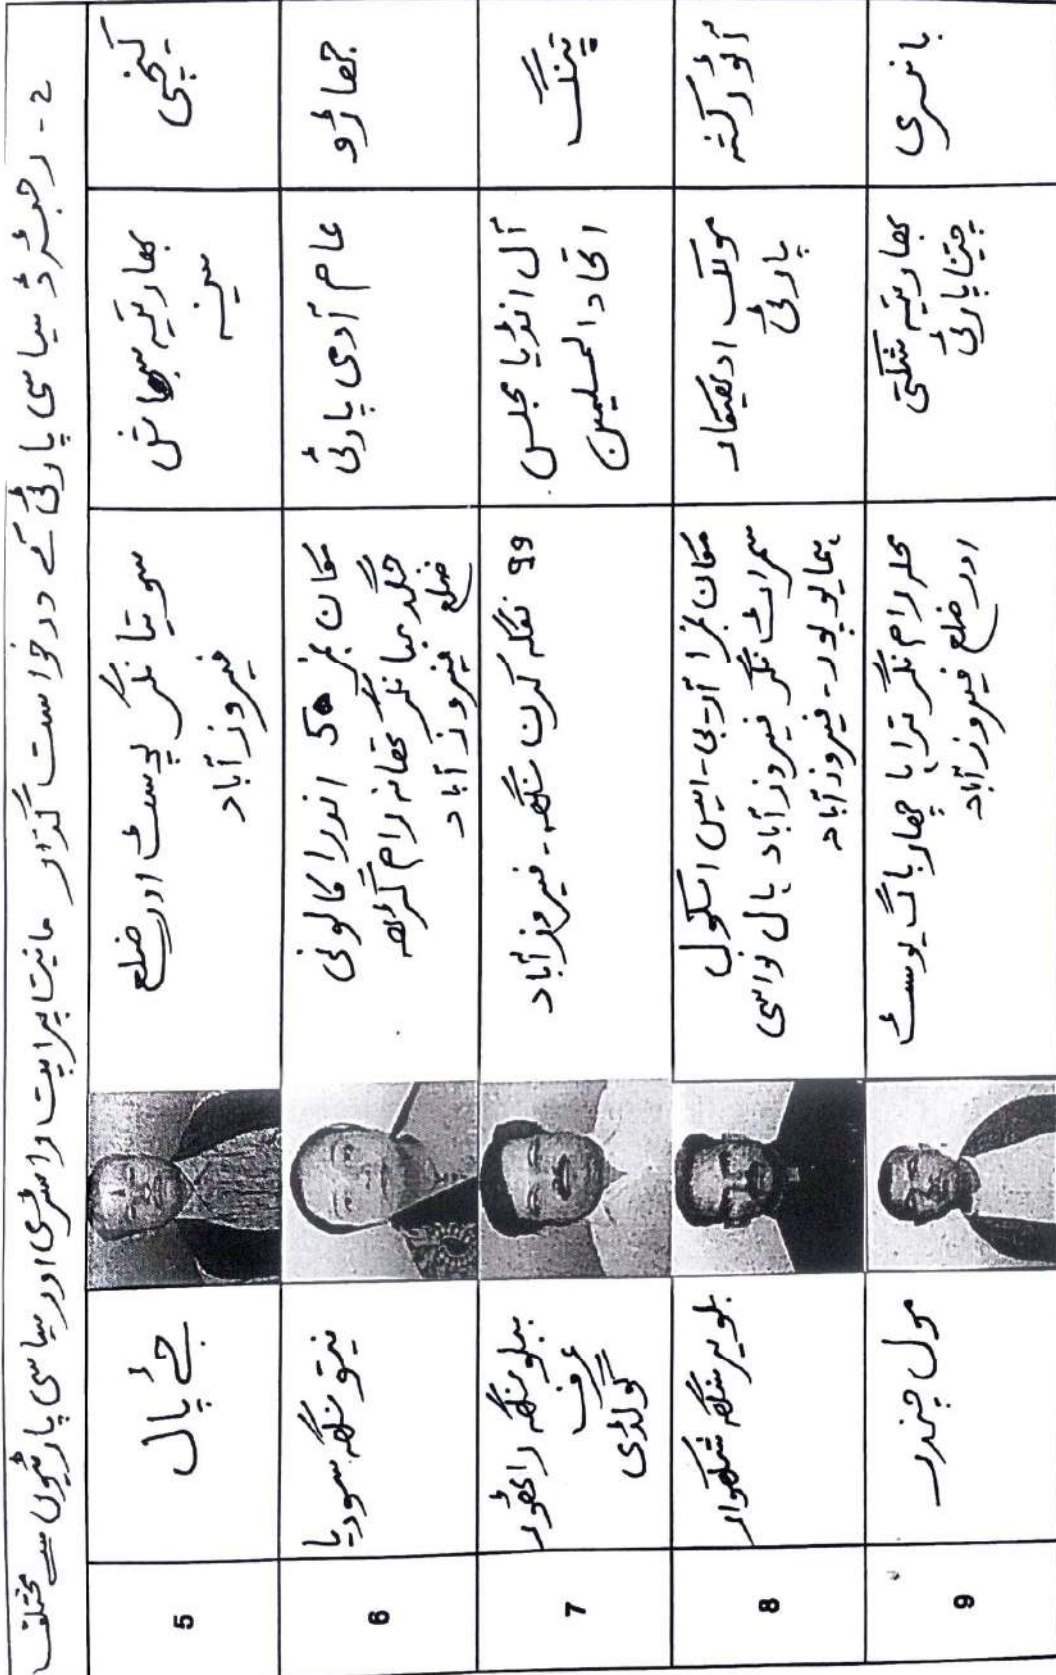 2 - رجسٹرڈ سیاسی پارٹی کے درخواست گذار مانیتا پراپت راسٹری اور سیاسی پارٹیوں سے مختلف
5
جے پال
سوتیا نگر پوسٹ اور ضلع
فیروزآباد
بھارتیہ سبھاش
سینہ
کینچی
6
نیتو سنگھ سسودیا
مکان نمبر 50 اندرا کالونی
جگدمبا نگر تھانہ رام گڑھ
ضلع فیروزآباد
عام آدمی پارٹی
جھاڑو
7
ببلو سنگھ راٹھور
عرف
گولڈی
99 نگلہ کرن سنگھ - فیروزآباد
آل انڈیا مجلس
اتحادالمسلمین
پتنگ
8
بلویر سنگھ شنکھوار
مکان نمبر 1 آر-بی-ایس اسکول
سمراٹ نگر فیروزآباد ہال نواسی
ہمایوپور - فیروزآباد
مولک ادھیکار
پارٹی
آٹورکشہ
9
مول چندر
محلہ رام نگر ترایا چھارباگ پوسٹ
اور ضلع فیروزآباد
بھارتیہ شکتی
چیتنا پارٹی
بانسری